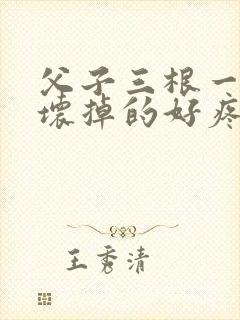 父子三根一
壊掉的好疼
王秀清